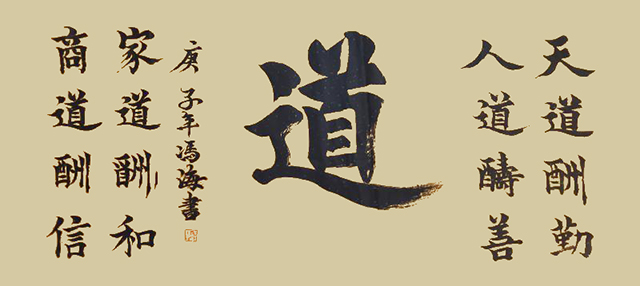 天道酬勤
人道醻善
道
家道酬和
商道酬信
庚子年馮海書